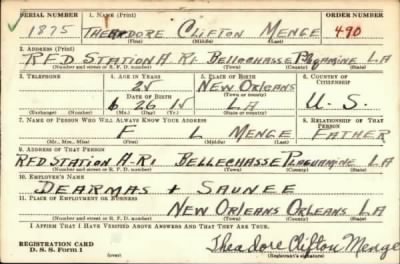 SERIAL NUMBER 1. NAME (Print) ORDER NUMBER
1875 THEADORE CLIFTON MENGE 490
(First) (Middle) (Last)
2. ADDRESS (Print)
RFD STATION A. R1 BELLECHASSE PLAQUAMINE LA
(Number and street or R. F. D. number) (Town) (County) (State)
3. TELEPHONE 4. AGE IN YEARS 5. PLACE OF BIRTH 6. COUNTRY OF CITIZENSHIP
25 NEW ORLEANS
DATE OF BIRTH (Town or county)
6 26 15 LA U. S.
(Exchange) (Number) (Mo.) (Day) (Yr.) (State or country)
7. NAME OF PERSON WHO WILL ALWAYS KNOW YOUR ADDRESS 8. RELATIONSHIP OF THAT PERSON
F L MENGE FATHER
(Mr., Mrs., Miss) (First) (Middle) (Last)
9. ADDRESS OF THAT PERSON
RFD STATION A-R1 BELLECHASSE PLAQUAMINE LA
(Number and street or R. F. D. number) (Town) (County) (State)
10. EMPLOYER'S NAME
DEARMAS + SAUNEE
11. PLACE OF EMPLOYMENT OR BUSINESS
NEW ORLEANS ORLEANS LA
(Number and street or R. F. D. number) (Town) (County) (State)
I AFFIRM THAT I HAVE VERIFIED ABOVE ANSWERS AND THAT THEY ARE TRUE.
REGISTRATION CARD
D. S. S. Form 1 (over) Theadore Clifton Menge
(Registrant's signature)